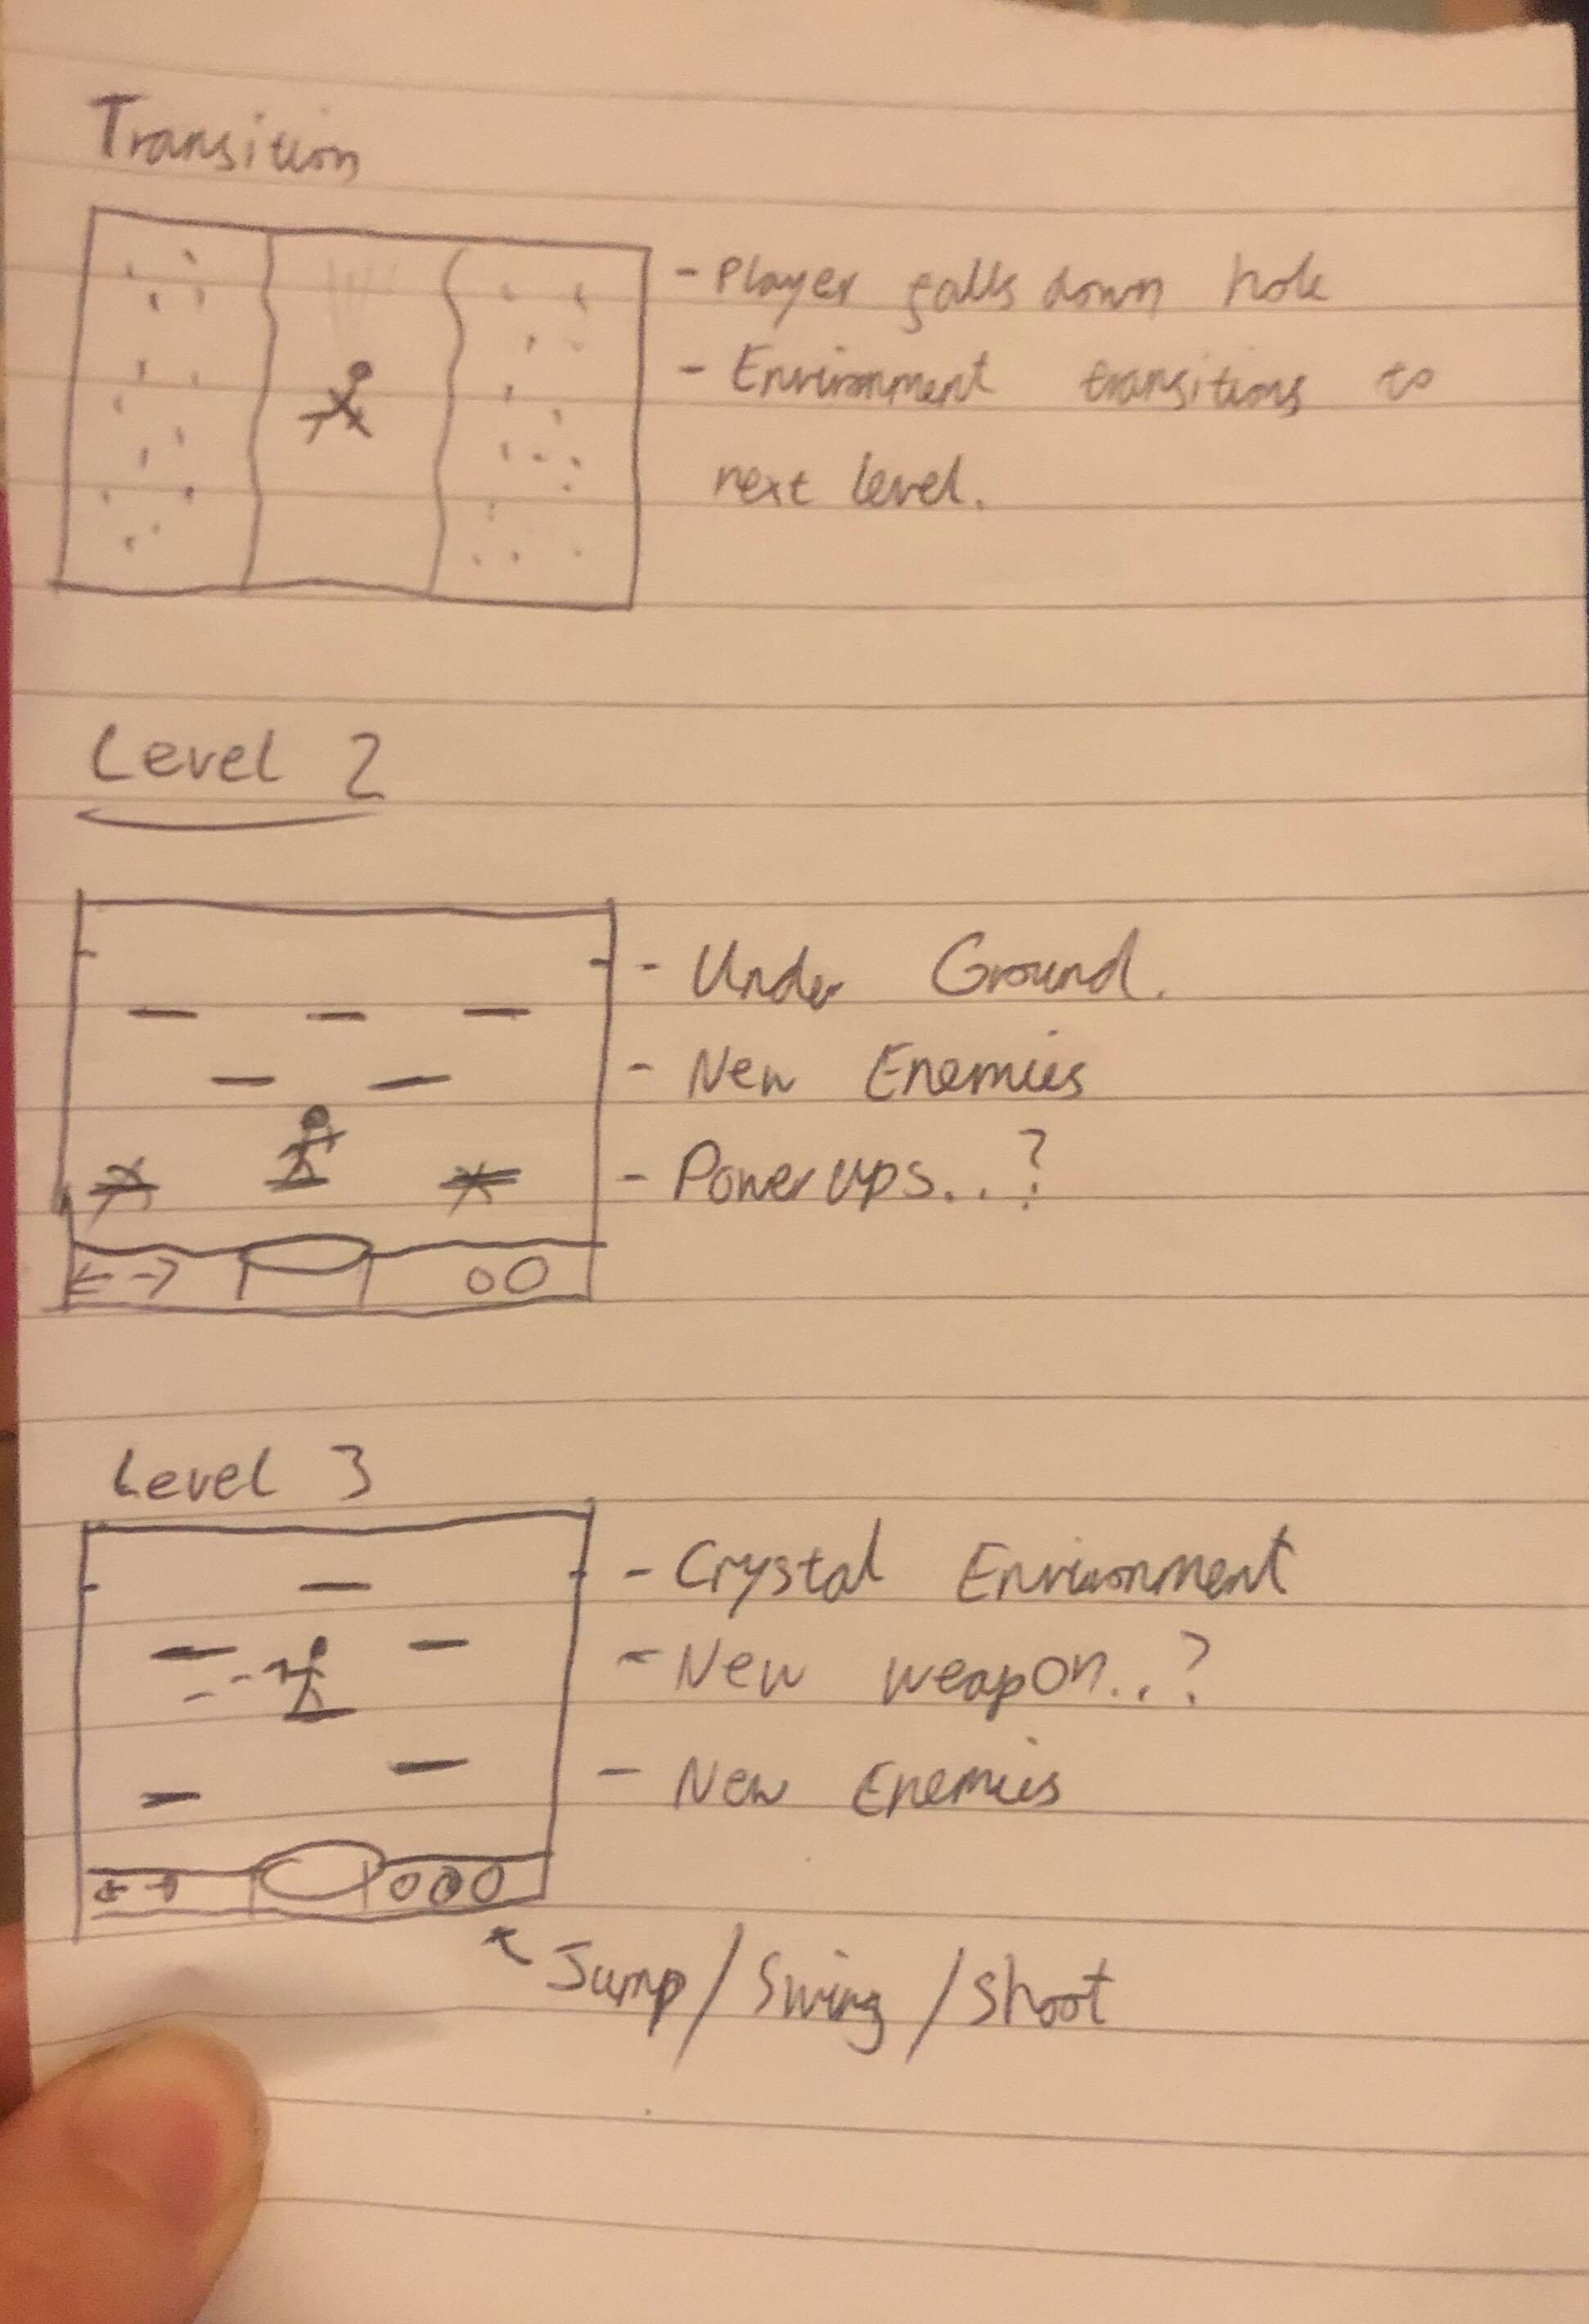 Transition
- Player falls down hole
- Environment transitions to
next level.
Level 2
- Under Ground.
- New Enemies
- Power ups..?
Level 3
- Crystal Environment
- New weapon..?
- New Enemies
Jump/Swing/Shoot